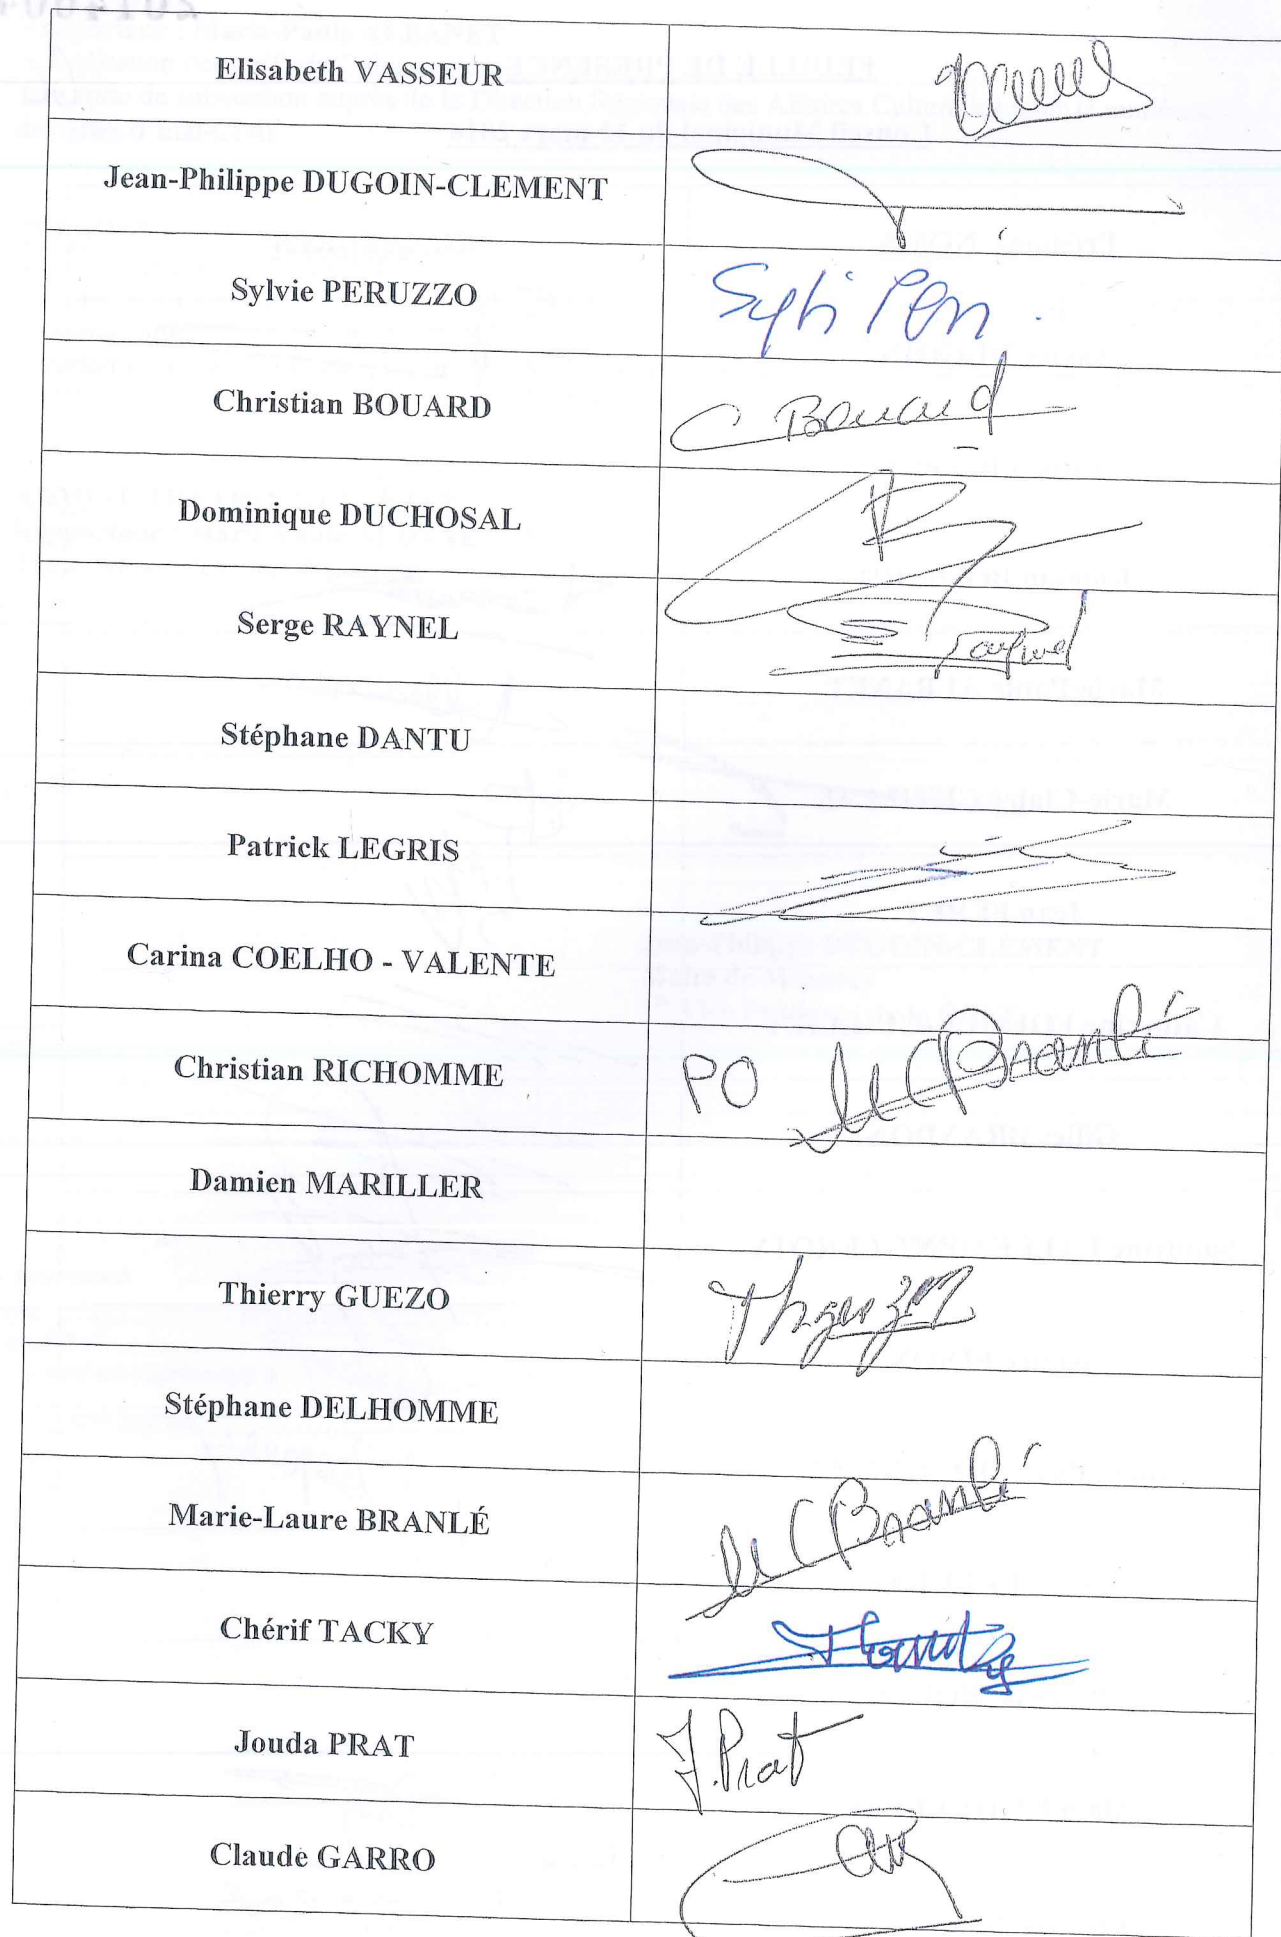 Elisabeth VASSEUR
Jean-Philippe DUGOIN-CLEMENT
Sylvie PERUZZO
Christian BOUARD
C Bouard
Dominique DUCHOSAL
Serge RAYNEL
Raynel
Stéphane DANTU
Patrick LEGRIS
Carina COELHO - VALENTE
Christian RICHOMME
PO Branlé
Damien MARILLER
Thierry GUEZO
Stéphane DELHOMME
Marie-Laure BRANLÉ
Branlé
Chérif TACKY
Jouda PRAT
J. Prat
Claude GARRO